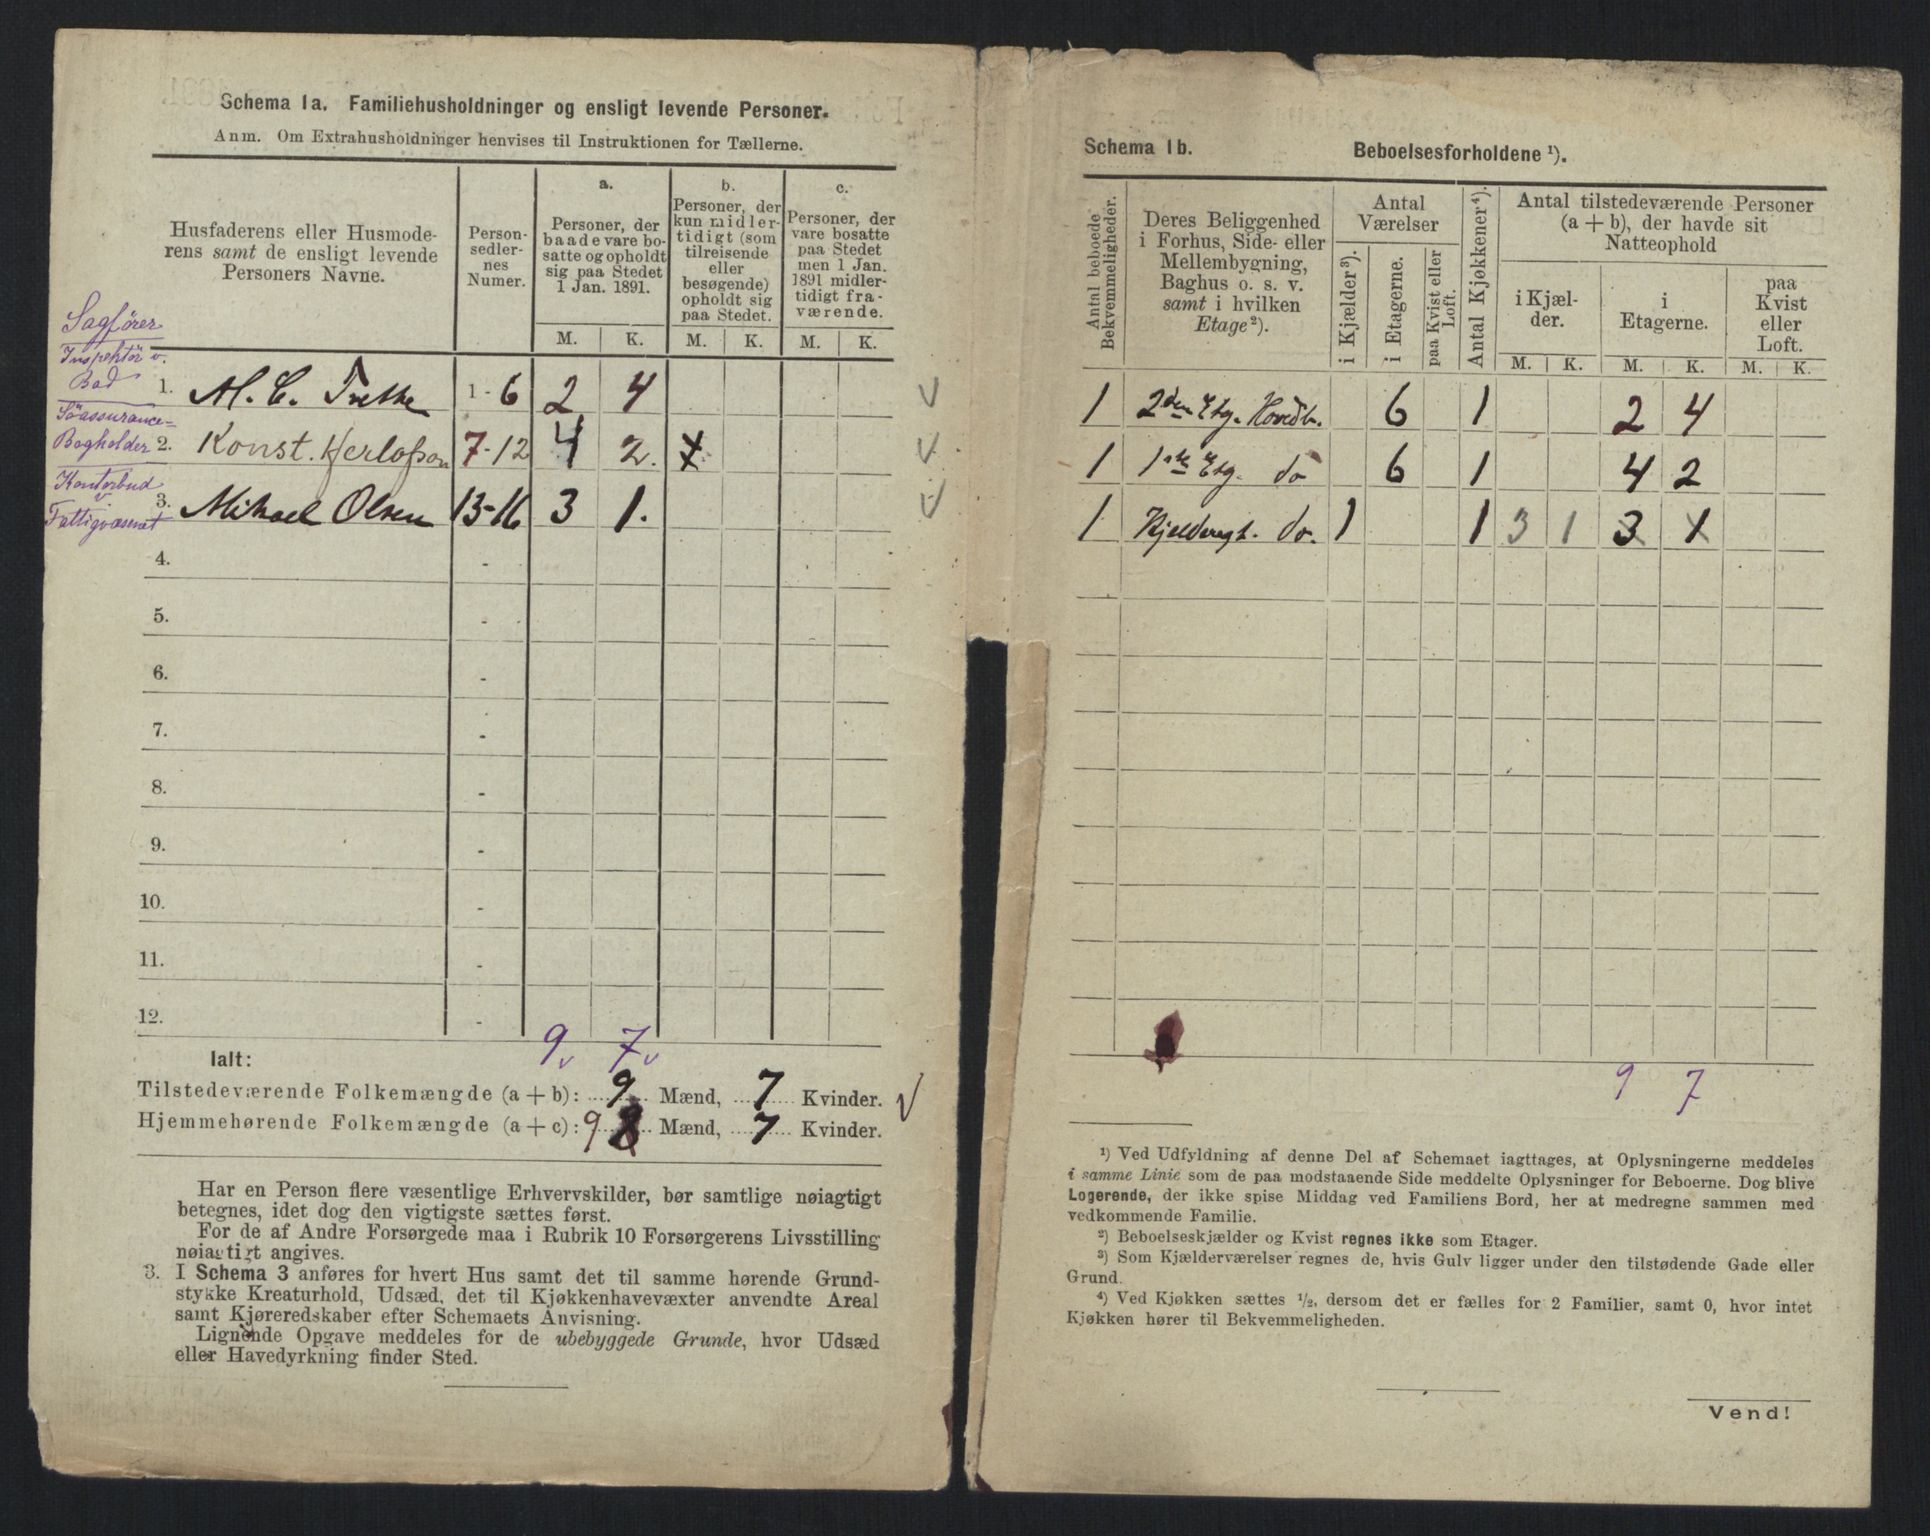 Schema 1a. Familiehusholdninger og ensligt levende Personer.
Anm. Om Extrahusholdninger henvises til Instruktionen for Tællerne.
Husfaderens eller Husmode-
rens samt de ensligt levende
Personers Navne.
Person-
sedler-
nes
Numer.
a.
Personer, der
baade vare bo-
satte og opholdt
sig paa Stedet
1 Jan. 1891.
b.
Personer, der
kun midler-
tidigt (som
tilreisende
eller
besøgende)
opholdt sig
paa Stedet.
c.
Personer, der
vare bosatte
paa Stedet
men 1 Jan.
1891 midler-
tidigt fra-
værende.
M. K. M. K. M. K.
Sagfører
Inspektör v.
Bad
1. M. C. 1-6 2 4
Söassurance-
Bogholder
2. Konst. Herlofson 7-12 4 2.
Kontorbud
v
Fattigvæsenet
3. Mikael Olsen 13-16 3 1.
4. -
5. -
6. -
7. -
8. -
9. -
10. -
11. -
12. -
Ialt: 9 7
Tilstedeværende Folkemængde (a + b): 9 Mænd, 7 Kvinder.
Hjemmehørende Folkemængde (a + c): 9 8 Mænd, 7 Kvinder.
Har en Person flere væsentlige Erhvervskilder, bør samtlige nøiagtigt
betegnes, idet dog den vigtigste sættes først.
For de af Andre Forsørgede maa i Rubrik 10 Forsørgerens Livsstilling
nøiagtigt angives.
3. I Schema 3 anføres for hvert Hus samt det til samme hørende Grund-
stykke Kreaturhold, Udsæd, det til Kjøkkenhavevæxter anvendte Areal
samt Kjøreredskaber efter Schemaets Anvisning.
Lignende Opgave meddeles for de ubebyggede Grunde, hvor Udsæd
eller Havedyrkning finder Sted.
Schema 1b. Beboelsesforholdene ¹).
Antal beboede
Bekvemmeligheder.
Deres Beliggenhed
i Forhus, Side- eller
Mellembygning,
Baghus o. s. v.
samt i hvilken
Etage ²).
Antal
Værelser
i Kjælder ³).
i Etagerne.
paa Kvist eller
Loft.
Antal Kjøkkener ⁴).
Antal tilstedeværende Personer
(a + b), der havde sit
Natteophold
i Kjæl-
der.
i
Etagerne.
paa
Kvist
eller
Loft.
M. K. M. K. M. K.
1 2den Etg. Hovedb. 6 1 2 4
1 1ste Etg. do 6 1 4 2
1 do. 1 1 3 1 3 1
9 7
¹) Ved Udfyldning af denne Del af Schemaet iagttages, at Oplysningerne meddeles
i samme Linie som de paa modstaaende Side meddelte Oplysninger for Beboerne. Dog blive
Logerende, der ikke spise Middag ved Familiens Bord, her at medregne sammen med
vedkommende Familie.
²) Beboelseskjælder og Kvist regnes ikke som Etager.
³) Som Kjælderværelser regnes de, hvis Gulv ligger under den tilstødende Gade eller
Grund.
⁴) Ved Kjøkken sættes ½, dersom det er fælles for 2 Familier, samt 0, hvor intet
Kjøkken hører til Bekvemmeligheden.
Vend!